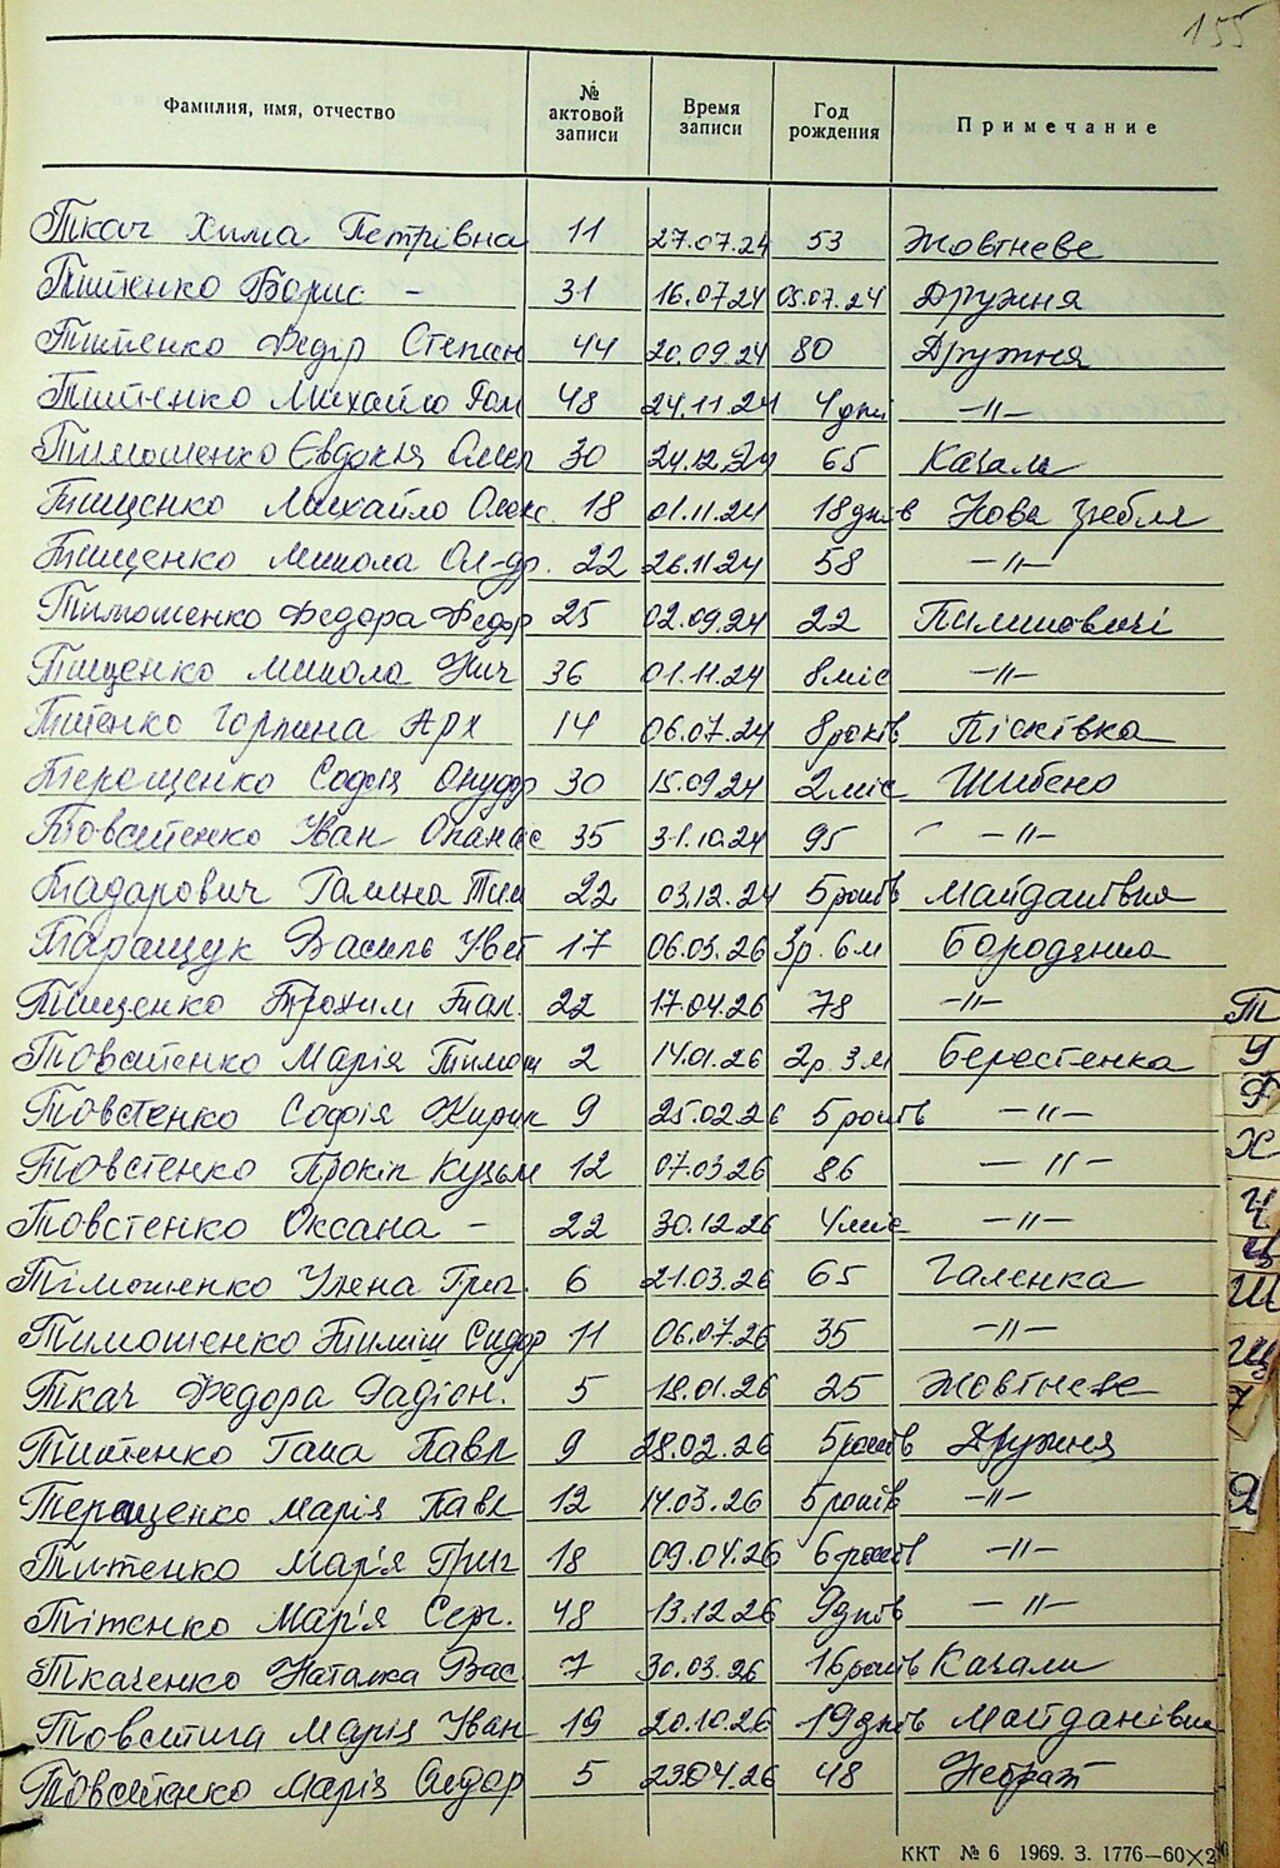 155
Фамилия, имя, отчество № актовой записи Время записи Год рождения Примечание
Ткач Хима Петрівна 11 27.07.24 53 Жовтневе
Титенко Борис - 31 16.07.24 05.07.24 Дружня
Титенко Федір Степан 44 20.09.24 80 Дружня
Титенко Михайло Ром 48 24.11.24 4 дні -"-
Тимошенко Євдокія Омел 30 24.12.24 65 Качали
Тищенко Михайло Олекс. 18 01.11.24 18 днів Нова Гребля
Тищенко Микола Ол-др. 22 26.11.24 58 -"-
Тимошенко Федора Федор 25 02.09.24 22 Пилиповичі
Тищенко Микола Нич 36 01.11.24 8 міс -"-
Титенко Горпина Арх 14 06.07.24 8 років Пісківка
Терещенко Софія Онуфр 30 15.09.24 2 міс Шибено
Товстенко Іван Опанас 35 31.10.24 95 -"-
Тадарович Галина Тим 22 03.12.24 5 років Майданівка
Таращук Василь 17 06.03.26 3р. 6м Бородянка
Тищенко Трохим Пал. 22 17.04.26 78 -"-
Товстенко Марія Тимош 2 14.01.26 2р. 3м Берестянка
Товстенко Софія Кирил 9 25.02.26 5 років -"-
Товстенко Прокіп Кузьм 12 07.03.26 86 -"-
Товстенко Оксана - 22 30.12.26 4 міс -"-
Тімошенко Уляна Григ. 6 21.03.26 65 Галенка
Тимошенко Тиміш Сидор 11 06.07.26 35 -"-
Ткач Федора Радіон. 5 18.01.26 25 Жовтневе
Титенко Гана Павл 9 28.02.26 5 років Дружня
Терещенко Марія Павл 12 14.03.26 5 років -"-
Титенко Мар'я Григ 18 09.04.26 6 років -"-
Тітенко Мар'я Серг. 48 13.12.26 9 днів -"-
Ткаченко Наталка Вас. 7 30.03.26 16 років Качали
Товстига Марія Іван 19 20.10.26 19 днів Майданівка
Товстенко Марія Сидор 5 23.04.26 48 Небрат
Т
У
Ф
Х
Ч
Ц
Ш
Щ
Я
ККТ № 6 1969. З. 1776—60×2